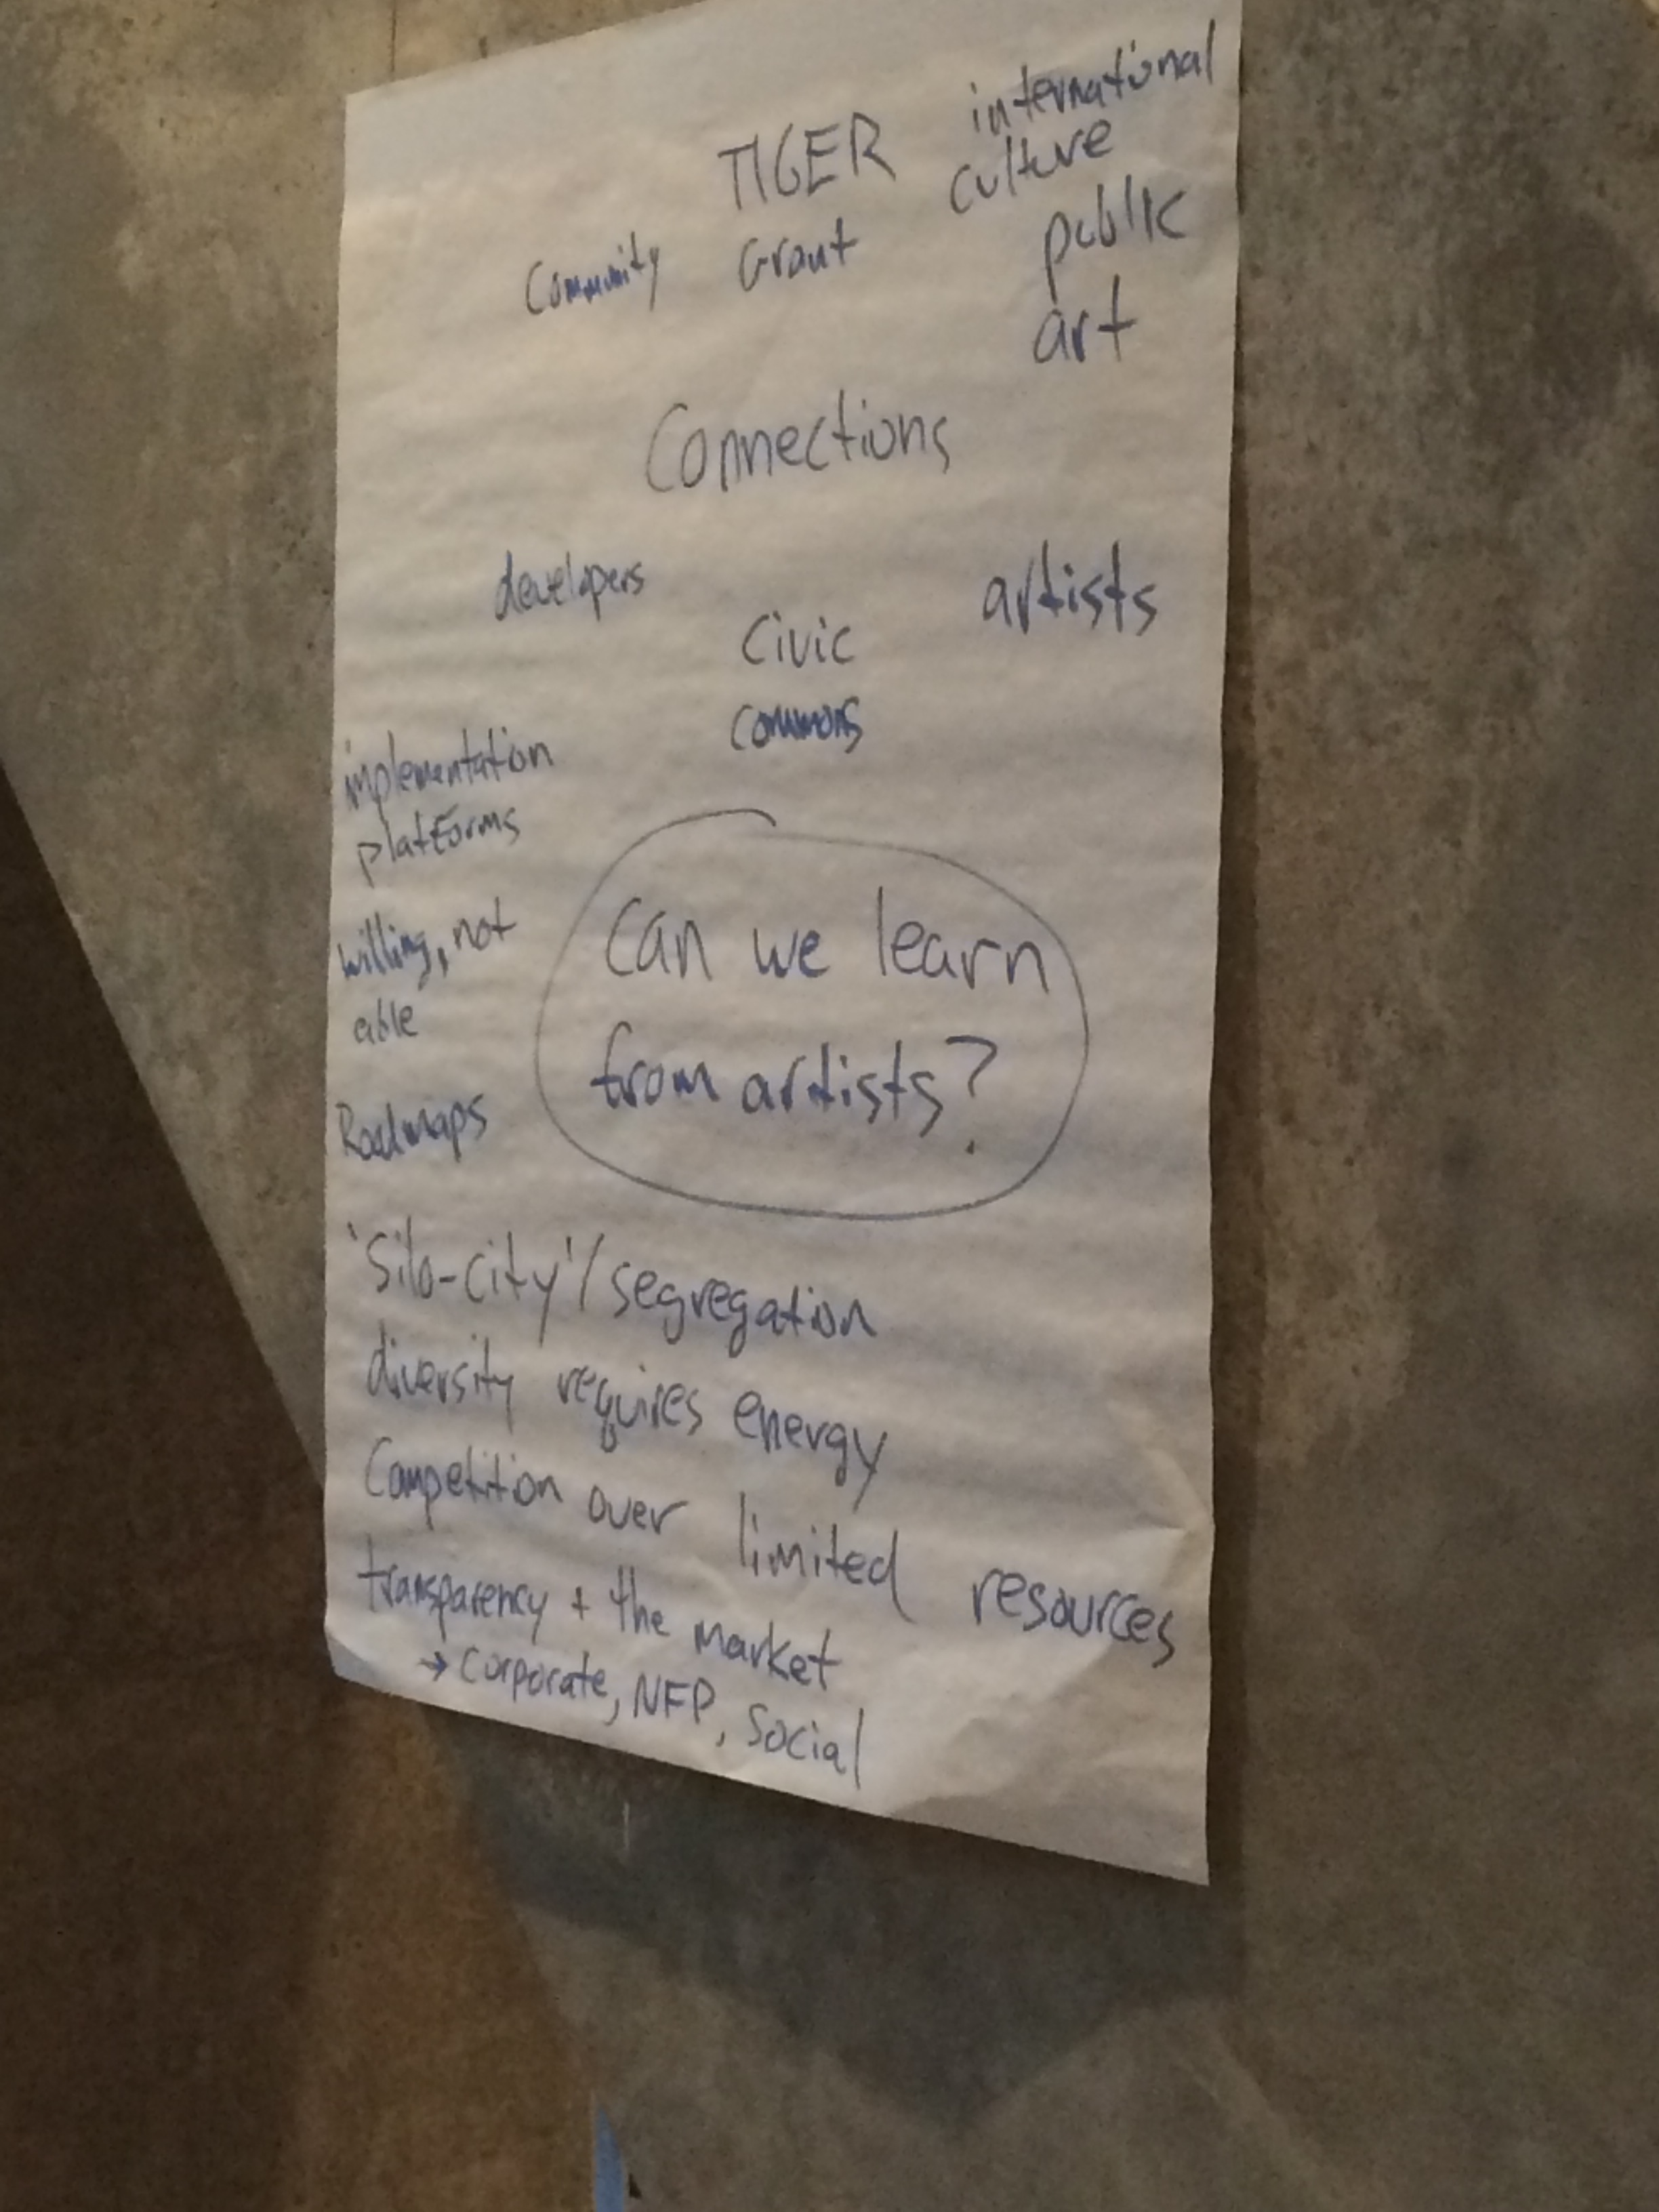 international
culture
TIGER
Grant
Community
public
art
Connections
developers
artists
Civic
commons
implementation
platforms
willing, not
able
Roadmaps
Can we learn
from artists?
'Silo-city'/segregation
diversity requires energy
Competition over limited resources
transparency + the market
→ corporate, NFP, Social